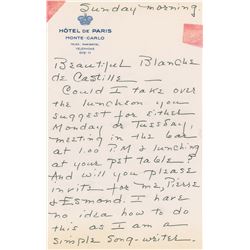 Sunday morning.
HÔTEL DE PARIS
MONTE-CARLO
Beautiful Blanche
de Castille —
Could I take over
the luncheon you
suggest for either
Monday or Tuesday,
meeting in the bar
at 1.00 P.M & lunching
at your pet table?
And will you please
invite for me, Pierre
& Esmond. I have
no idea how to do
this as I am a
simple song-writer.